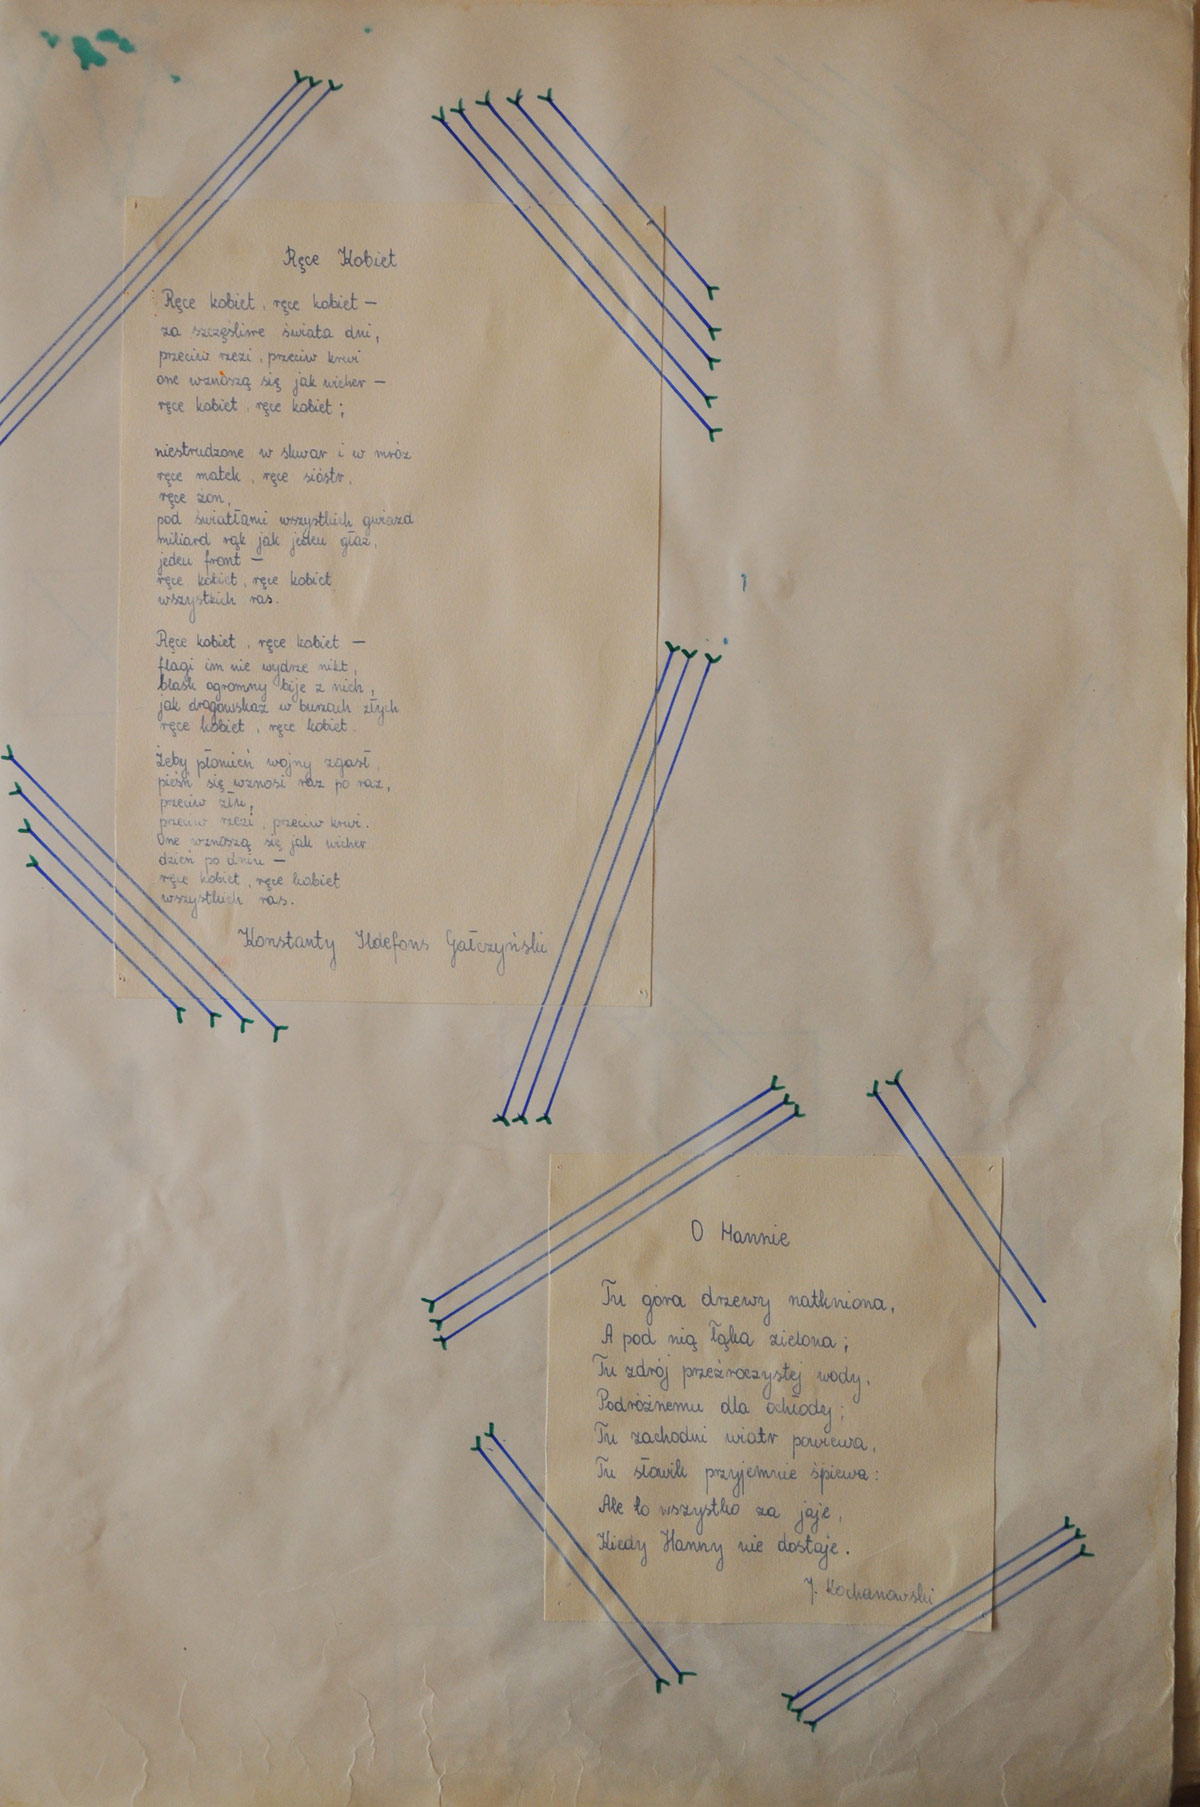 Ręce Kobiet
Ręce kobiet, ręce kobiet –
za szczęśliwe świata dni,
przeciw rzezi, przeciw krwi
one wznoszą się jak wicher –
ręce kobiet, ręce kobiet;
niestrudzone w skwar i w mróz
ręce matek, ręce sióstr,
ręce żon,
pod światłami wszystkich gwiazd
miliard rąk jak jeden głaz,
jeden front –
ręce kobiet, ręce kobiet
wszystkich ras.
Ręce kobiet, ręce kobiet –
flagi im nie wydrze nikt,
blask ogromny bije z nich,
jak drogowskaz w burzach złych
ręce kobiet, ręce kobiet.
Żeby płomień wojny zgasł,
pieśń się wznosi raz po raz,
przeciw złu,
przeciw rzezi, przeciw krwi.
One wznoszą się jak wicher
dzień po dniu –
ręce kobiet, ręce kobiet
wszystkich ras.
Konstanty Ildefons Gałczyński
O Hannie
Tu góra drzewy natkniona,
A pod nią łąka zielona;
Tu zdrój przeźroczystej wody,
Podróżnemu dla ochłody;
Tu zachodni wiatr powiewa,
Tu słowik przyjemnie śpiewa:
Ale to wszystko za jaje,
Kiedy Hanny nie dostaje.
J. Kochanowski